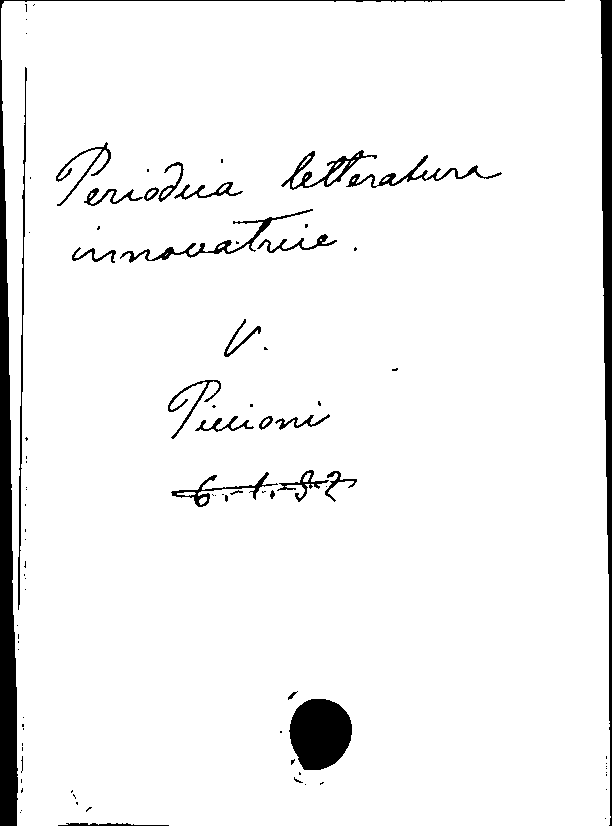 Periodica letteratura
innovatrice.
V.
Piccioni
6.-1.-9-2